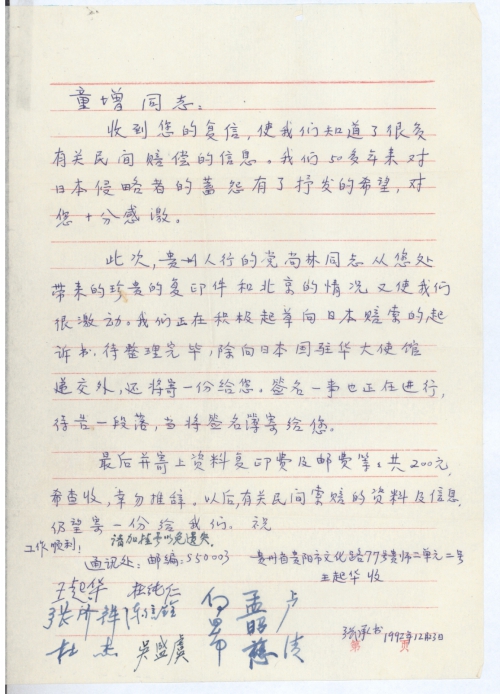 童增同志：
收到您的复信，使我们知道了很多
有关民间赔偿的信息。我们50多年来对
日本侵略者的蓄怨有了抒发的希望，对
您十分感激。
此次，贵州人行的党尚林同志从您处
带来的珍贵的复印件和北京的情况又使我们
很激动。我们正在积极起草向日本赔索的起
诉书，待整理完毕，除向日本国驻华大使馆
递交外，还将寄一份给您。签名一事也正在进行，
待告一段落，当将签名簿寄给您。
最后并寄上资料复印费及邮费等：共200元，
希查收，幸勿推辞。以后，有关民间索赔的资料及信息，
仍望寄一份给我们。祝
请加挂号以免遗失。
工作顺利！
通讯处：邮编：550003 贵州省贵阳市文化路77号贵师二单元二号
王起华 收
王起华 杜纯仁
杜杰 吴盛虞
张承书 1992年12月3日
第 页